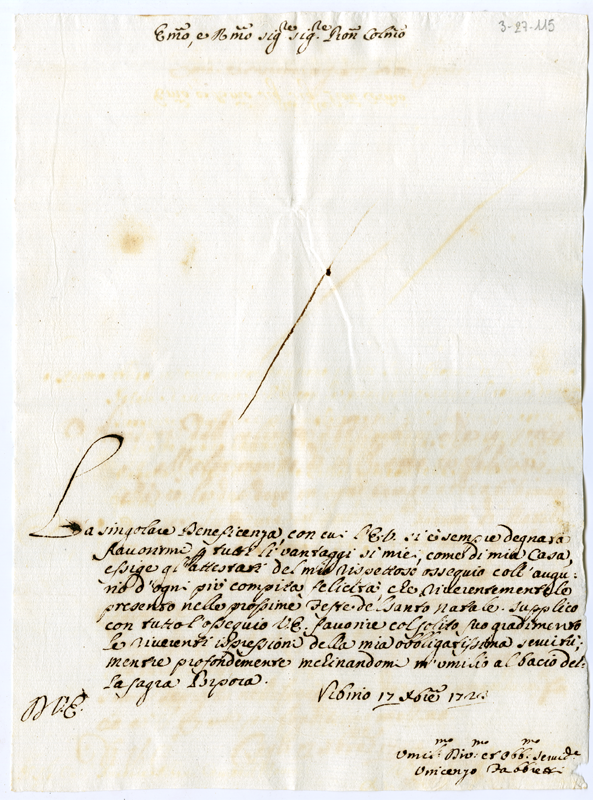 3-27-115
Emo, e Rmo Sigre Sigre Pron Colmo
La singolare Beneficenza, con cui l'E.V. si è sempre degnata
favorirmi tutti li vantaggi si miei, come di mia Casa,
esige gl'attestati del mio rispettoso ossequio coll'augu:
rio d'ogni più compita felicità che riverentemente le
presento nelle prossime Feste del Santo Natale. Supplico
con tutto l'ossequio V.E. favorire col solito suo gradimento
le riverenti espressioni della mia obbligatissima servitù;
mentre profondemente inclinandomi m'umilio al bacio del:
la Sagra Porpora.
Urbino 17 Xbre
D. V. E.
Umilmo Divmo et Obbmo Servide
Vincenzo